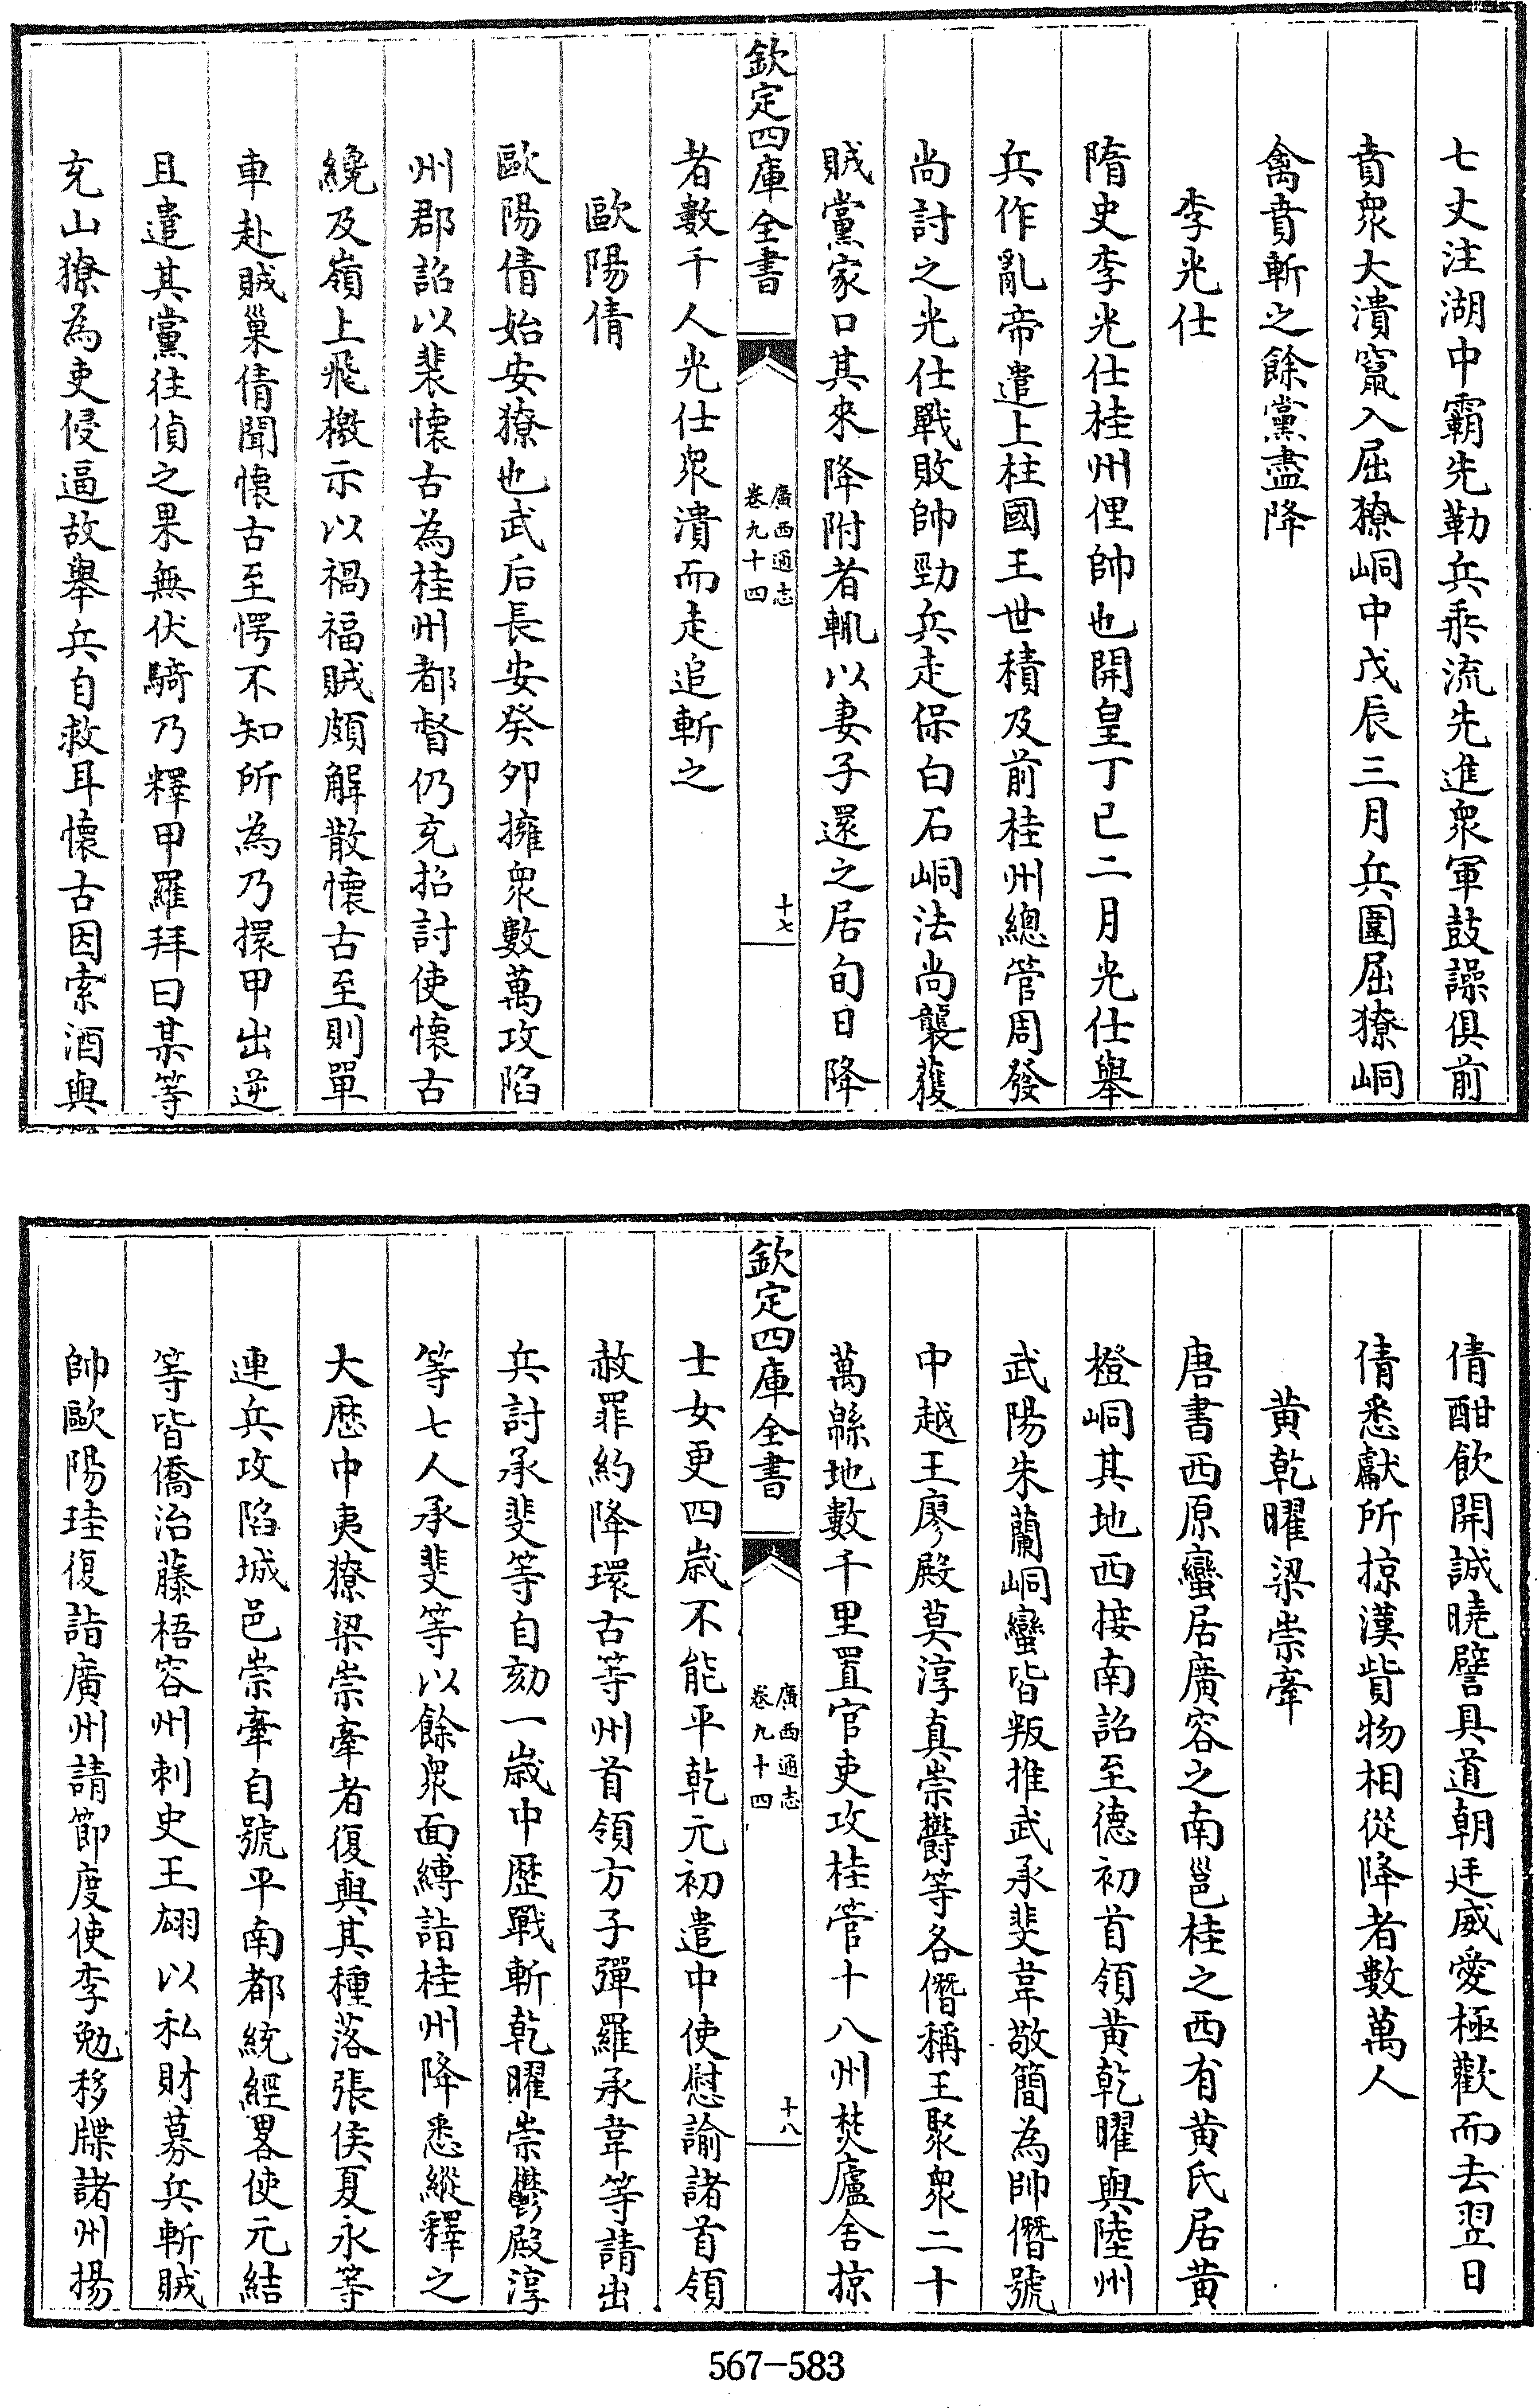 七丈注湖中霸先勒兵乘流先進衆軍鼓譟俱前
賁衆大潰竄入屈獠峒中戊辰三月兵圍屈獠峒
禽賁斬之餘黨盡降
李光仕
隋史李光仕桂州俚帥也開皇丁巳二月光仕舉
兵作亂帝遣上柱國王世積及前桂州總管周發
尚討之光仕戰敗帥勁兵走保白石峒法尚襲獲
賊黨家口其來降附者輒以妻子還之居旬日降
欽定四庫全書
廣西通志
卷九十四
十七
者數千人光仕衆潰而走追斬之
歐陽倩
歐陽倩始安獠也武后長安癸卯擁衆數萬攻陷
州郡詔以裴懷古為桂州都督仍充招討使懷古
纔及嶺上飛檄示以禍福賊頗解散懷古至則單
車赴賊巢倩聞懷古至愕不知所為乃擐甲出逆
且遣其黨往偵之果無伏騎乃釋甲羅拜曰某等
充山獠為吏侵逼故舉兵自救耳懷古因索酒與
倩酣飲開誠曉譬具道朝廷威愛極歡而去翌日
倩悉獻所掠漢貲物相從降者數萬人
黄乾曜梁崇牽
唐書西原蠻居廣容之南邕桂之西有黄氏居黄
橙峒其地西接南詔至德初首領黄乾曜與陸州
武陽朱蘭峒蠻皆叛推武承斐韋敬簡為帥僭號
中越王廖殿莫淳真崇欝等各僭稱王聚衆二十
萬緜地數千里置官吏攻桂管十八州焚廬舍掠
欽定四庫全書
廣西通志
卷九十四
十八
士女更四歳不能平乾元初遣中使慰諭諸首領
赦罪約降環古等州首領方子彈羅承韋等請出
兵討承斐等自劾一歳中歴戰斬乾曜崇鬱殿淳
等七人承斐等以餘衆面縛詣桂州降悉縱釋之
大厯中夷獠梁崇牽者復與其種落張侯夏永等
連兵攻陷城邑崇牽自號平南都統經畧使元結
等皆僑治藤梧容州刺史王翃以私財募兵斬賊
帥歐陽珪復詣廣州請節度使李勉移牒諸州揚
567-583